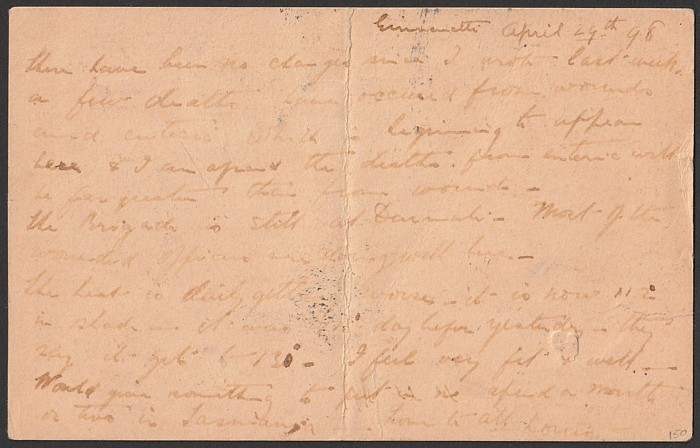 April 29th 98
there have been no changes since I wrote last week.
a few deaths have occured from wounds
and enteric which is beginning to appear
here & I am afraid the deaths from enteric will
be far greater than from wounds -
the Brigade is still at Darmali - Most of the
wounded officers are doing well here -
the heat is daily getting worse - it is now 112
in shade - it was day before yesterday - they
say it gets to 130 - I feel very fit & well -
Would give something to put in & spend a month
or two in Tasmania - love to all
150